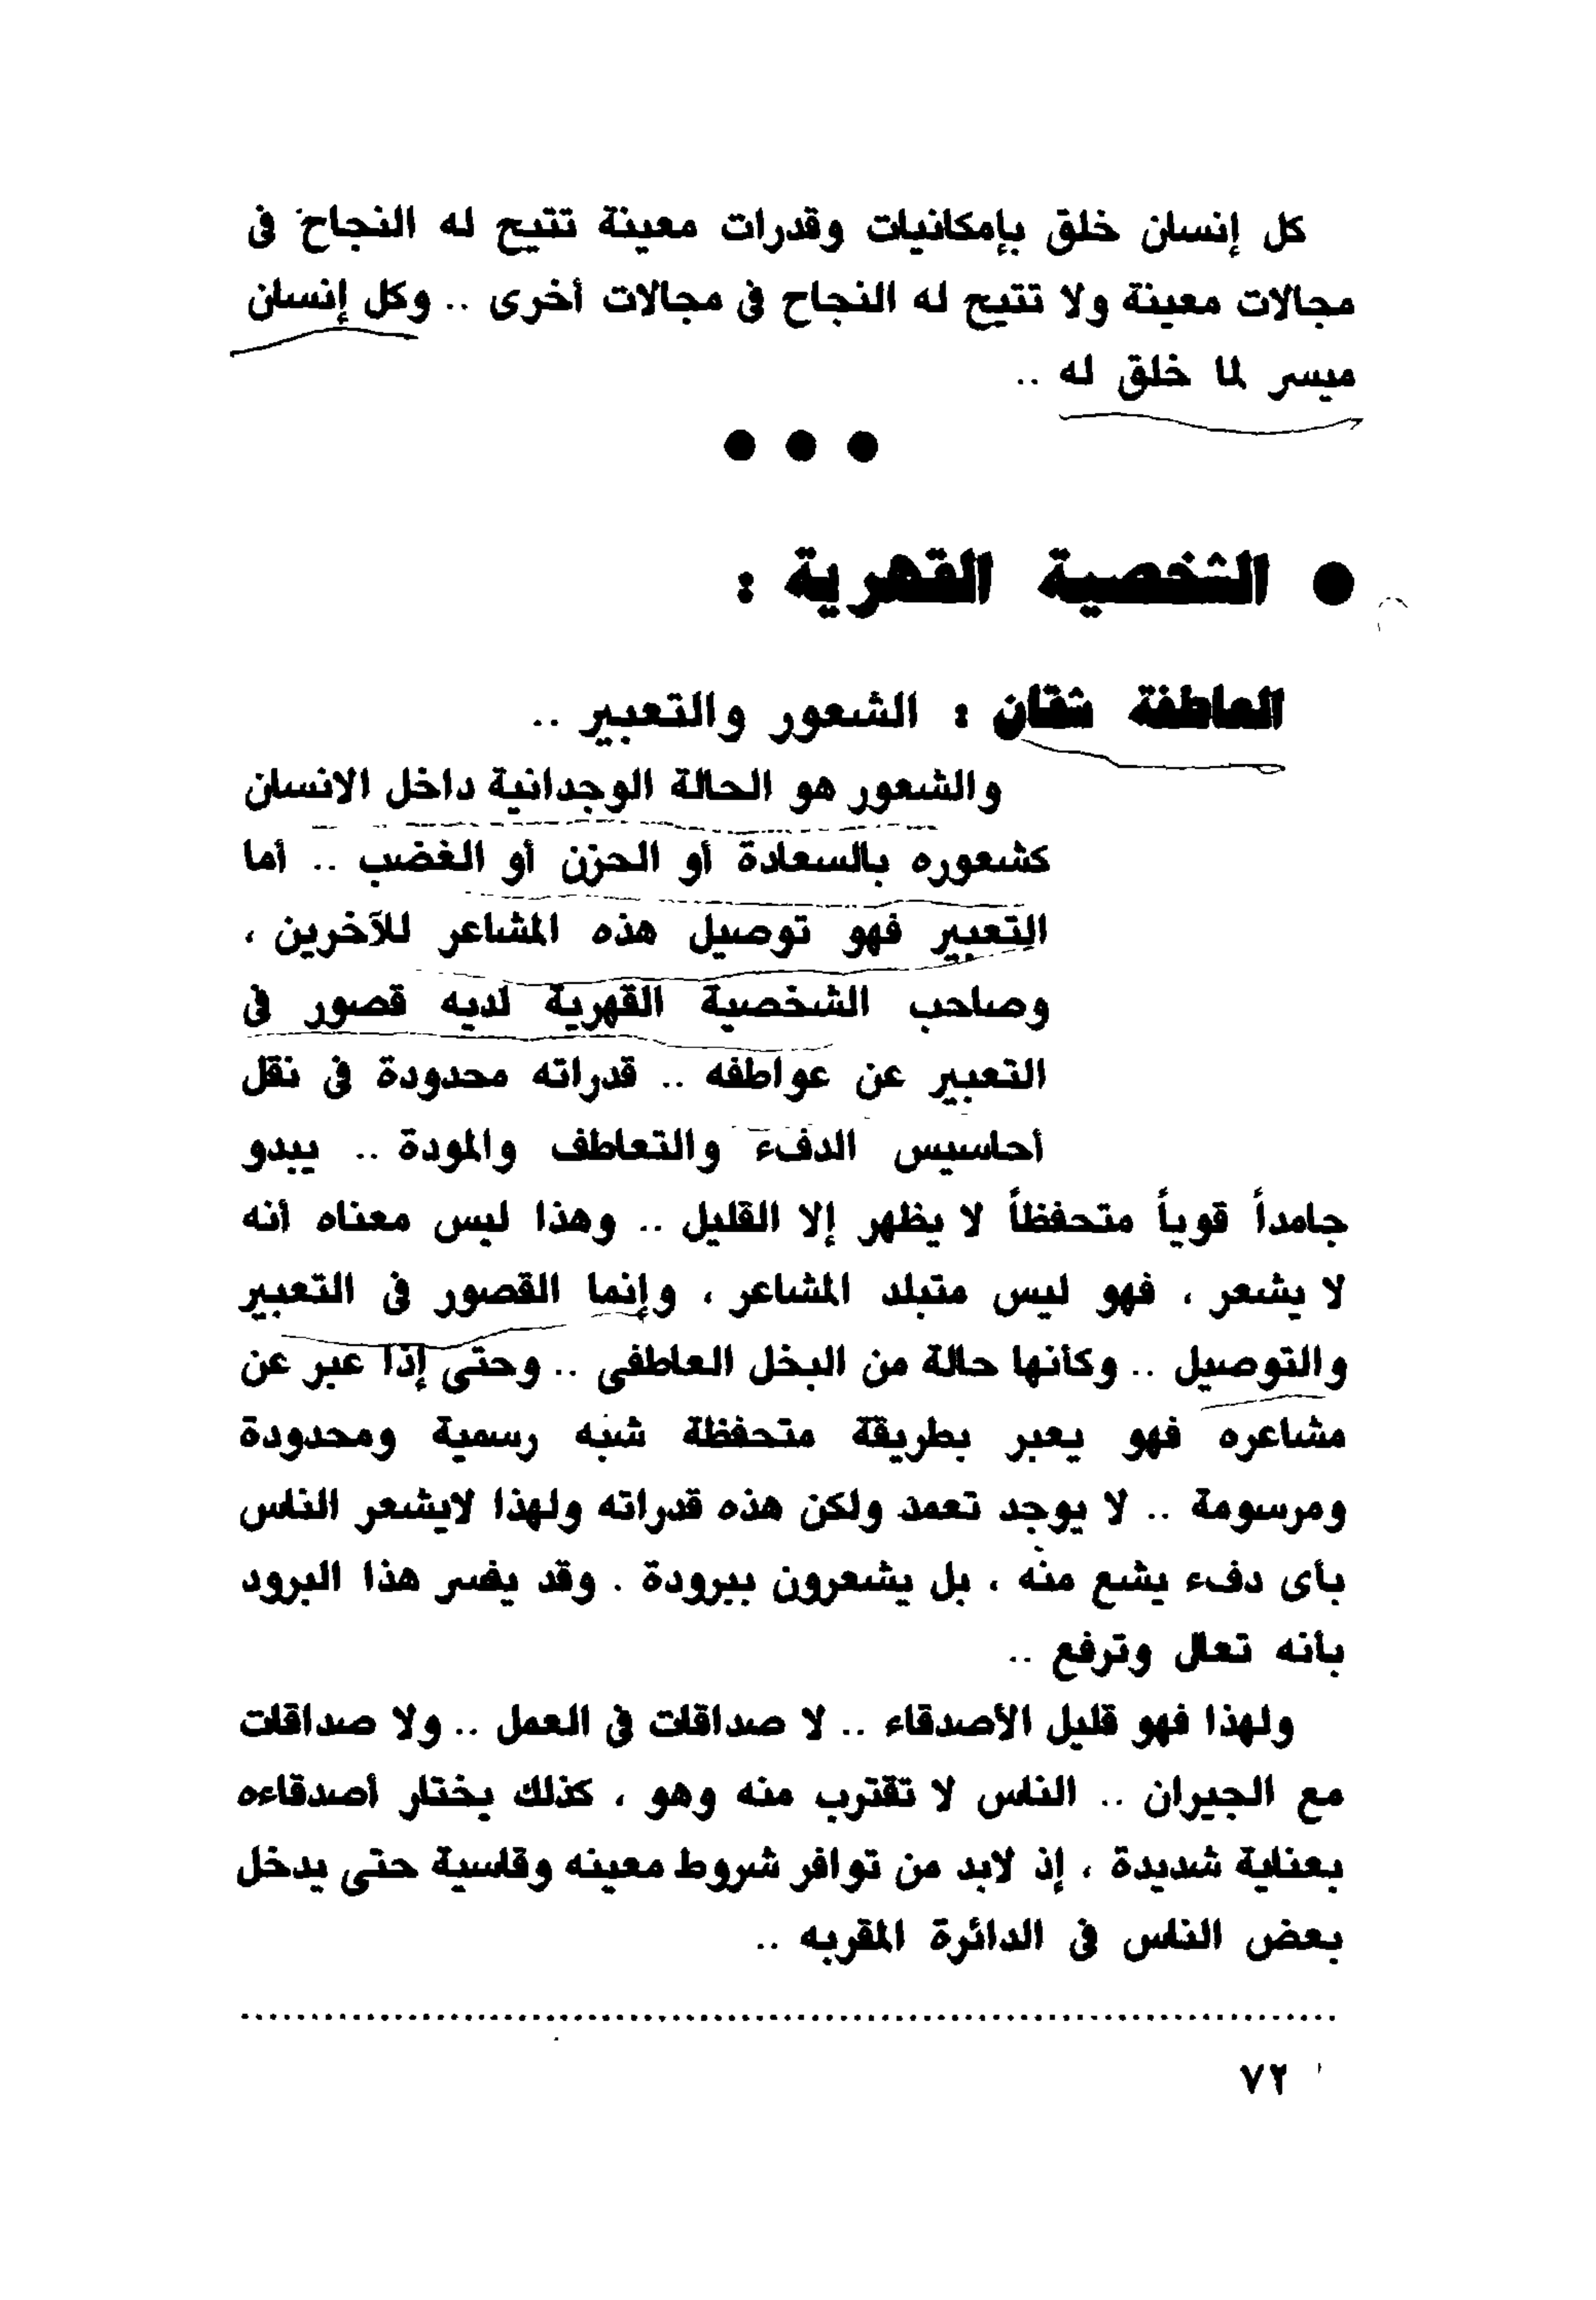 كل إنسان خلق بإمكانيات وقدرات معينة تتيح له النجاح فى
مجالات معينة ولا تتيح له النجاح فى مجالات أخرى .. وكل إنسان
ميسر لما خلق له ..
● ● ●
● الشخصية القهرية :
العاطفة شقان : الشعور والتعبير ..
والشعور هو الحالة الوجدانية داخل الانسان
كشعوره بالسعادة أو الحزن أو الغضب .. أما
التعبير فهو توصيل هذه المشاعر للآخرين ،
وصاحب الشخصية القهرية لديه قصور فى
التعبير عن عواطفه .. قدراته محدودة فى نقل
أحاسيس الدفء والتعاطف والمودة .. يبدو
جامداً قوياً متحفظاً لا يظهر إلا القليل .. وهذا ليس معناه أنه
لا يشعر ، فهو ليس متبلد المشاعر ، وإنما القصور فى التعبير
والتوصيل .. وكأنها حالة من البخل العاطفى .. وحتى إذا عبر عن
مشاعره فهو يعبر بطريقة متحفظة شبه رسمية ومحدودة
ومرسومة .. لا يوجد تعمد ولكن هذه قدراته ولهذا لايشعر الناس
بأى دفء يشع منه ، بل يشعرون ببرودة . وقد يفسر هذا البرود
بأنه تعال وترفع ..
ولهذا فهو قليل الأصدقاء .. لا صداقات فى العمل .. ولا صداقات
مع الجيران .. الناس لا تقترب منه وهو ، كذلك يختار أصدقاءه
بعناية شديدة ، إذ لابد من توافر شروط معينه وقاسية حتى يدخل
بعض الناس فى الدائرة المقربه ..
٧٢